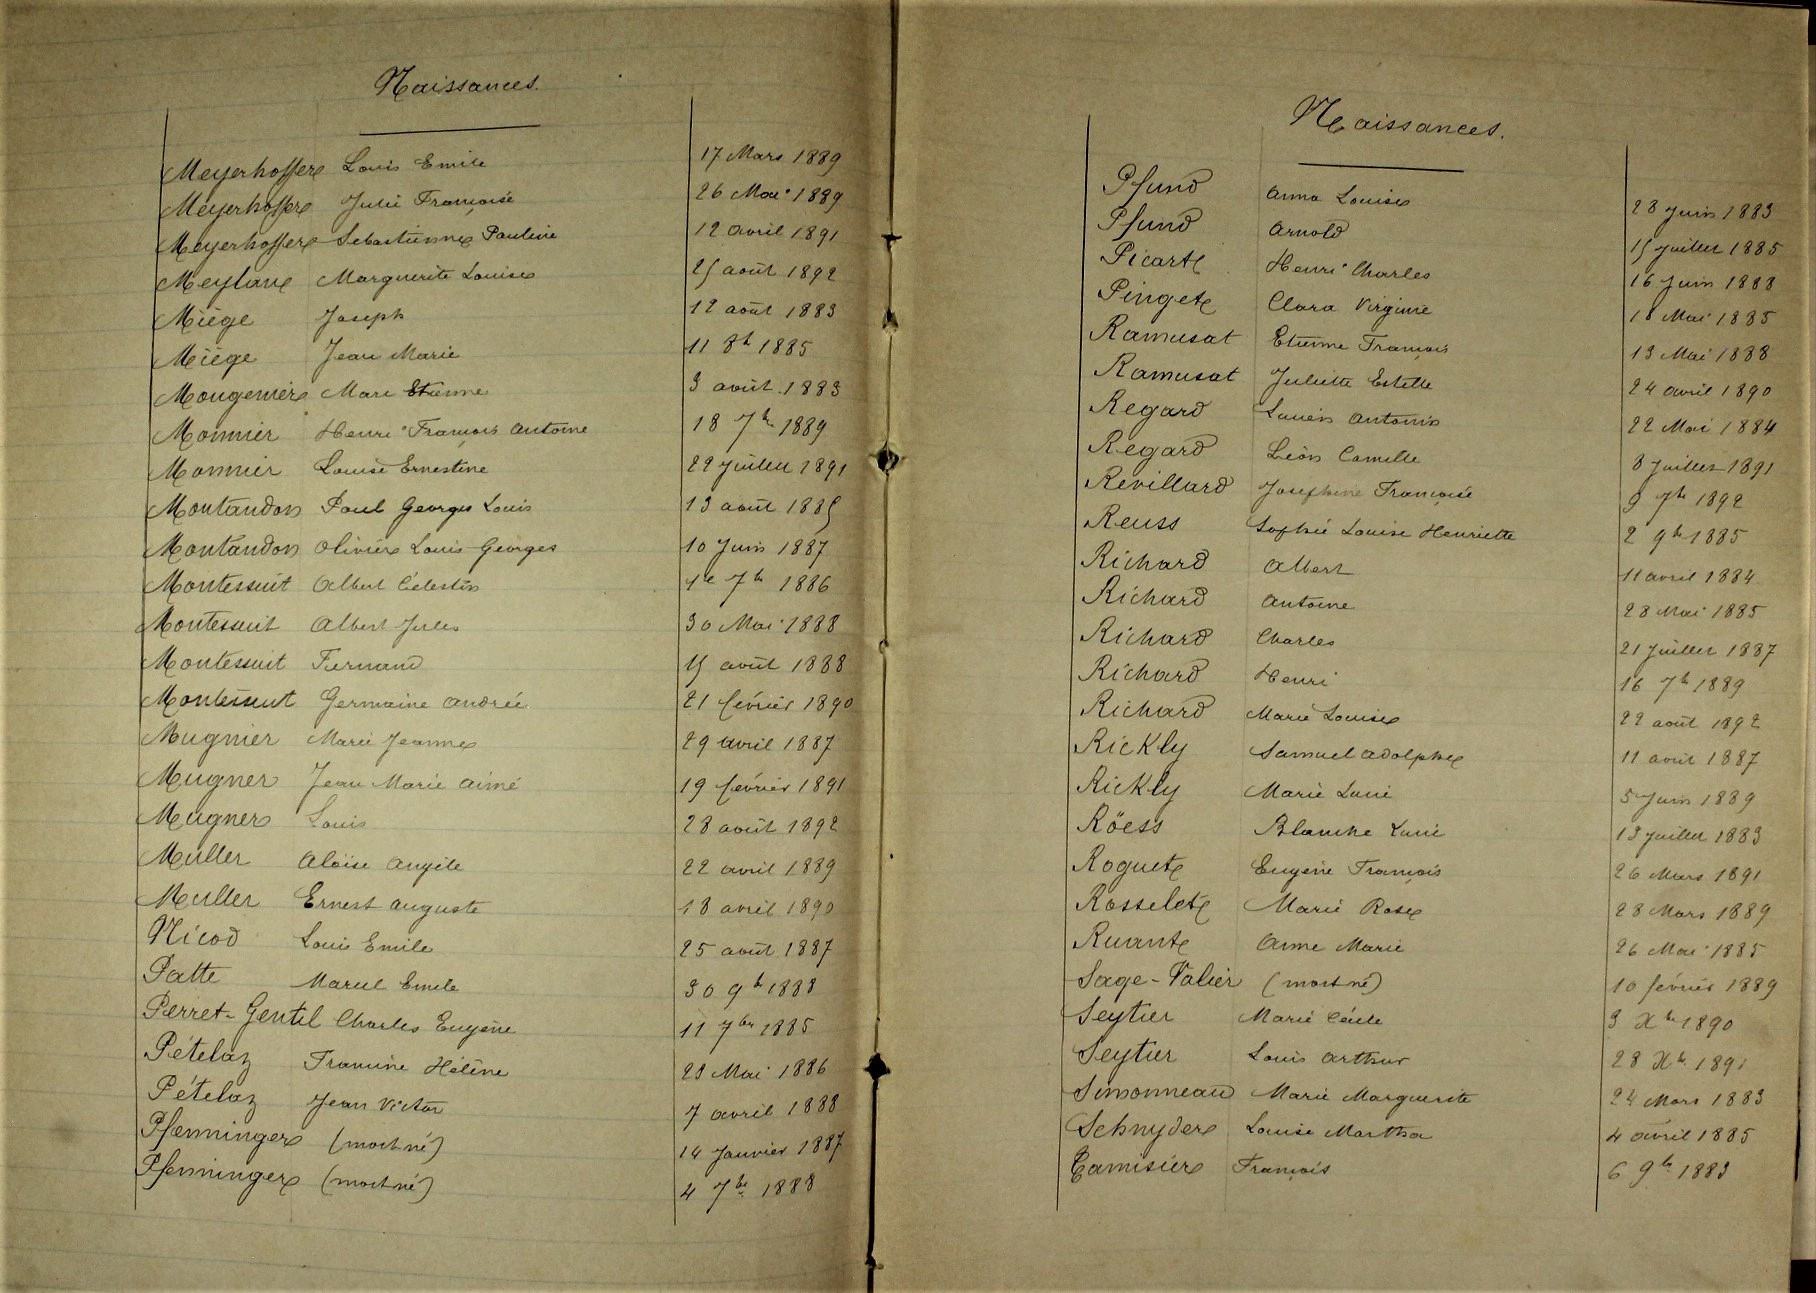 Naissances.
Meyerhoffer Louis Emile 17 Mars 1889
Meyerhoffer Julie Françoise 26 Mai 1889
Meyerhoffer Sebastienne Pauline 12 avril 1891
Meylan Marguerite Louise 25 août 1892
Miège Joseph 12 août 1883
Miège Jean Marie 11 8b 1885
Mougenier Marc Etienne 3 août 1883
Monnier Henri François Antoine 18 7b 1889
Monnier Louise Ernestine 22 juillet 1891
Montandon Paul Georges Louis 13 août 1885
Montandon Olivier Louis Georges 10 Juin 1887
Montessuit Albert Célestin 1e 7b 1886
Montessuit Albert Jules 30 Mai 1888
Montessuit Fernand 15 août 1888
Montessuit Germaine Andrée 21 février 1890
Mugnier Marie Jeanne 29 avril 1887
Mugner Jean Marie Aimé 19 février 1891
Mugner Louis 28 août 1892
Muller Aloïse Angèle 22 avril 1889
Muller Ernest Auguste 18 avril 1890
Nicod Louis Emile 25 août 1887
Patte Marcel Emile 30 9b 1888
Perret-Gentil Charles Eugène 11 7br 1885
Pételaz Francine Hélène 23 Mai 1886
Pételaz Jean Victor 7 avril 1888
Pfenninger (mort né) 14 Janvier 1887
Pfenninger (mort né) 4 7bre 1888
Naissances.
Pfund Anna Louise 28 Juin 1883
Pfund Arnold 15 juillet 1885
Picart Henri Charles 16 Juin 1888
Pinget Clara Virginie 18 Mai 1885
Ramusat Etienne François 13 Mai 1888
Ramusat Juliette Estelle 24 avril 1890
Regard Lucien Antonin 22 Mai 1884
Regard Léon Camille 8 juillet 1891
Revillard Josephine Françoise 9 7b 1892
Reuss Sophie Louise Henriette 2 9b 1885
Richard Albert 11 avril 1884
Richard Antoine 28 Mai 1885
Richard Charles 21 juillet 1887
Richard Henri 16 7b 1889
Richard Marie Louise 22 août 1892
Rickly Samuel Adolphe 11 avril 1887
Rickly Marie Lucie 5 Juin 1889
Röess Blanche Lucie 13 juillet 1883
Roguet Eugène François 26 Mars 1891
Rosselet Marie Rose 28 Mars 1889
Ruant Anne Marie 26 Mai 1885
Sage-Valier (mort né) 10 février 1889
Seytier Marie Cécile 3 Xb 1890
Seytier Louis Arthur 28 Xb 1891
Simonneau Marie Marguerite 24 Mars 1883
Schnyder Louise Martha 4 avril 1885
Tamisier François 6 9b 1883